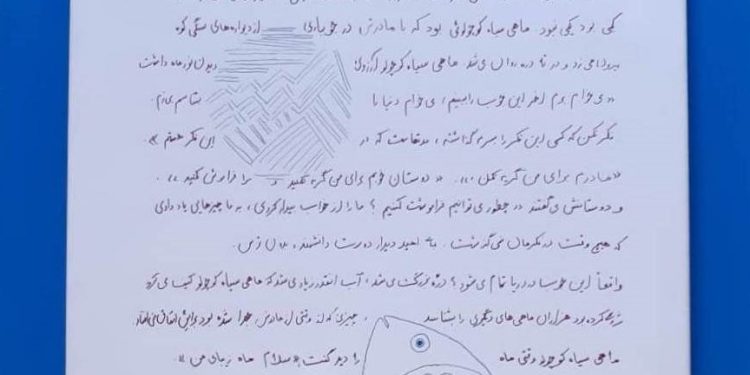 یکی بود یکی نبود. ماهی سیاه کوچولوئی بود که با مادرش در جویباری از دیواره‌های سنگی کوه
بیرون می زد و در ته دره روان می شد. ماهی سیاه کوچولو آرزوی دیدن نور ماه داشت
«می خوام بروم آخر این جویبار را ببینم، می خوام دنیا را بشناسم
فکر نکن که کسی این فکر را سرم گذاشته، مدتهاست که در این فکر هستم».
«مادرم برای من گریه نکن،». «دوستان خوبم برای من گریه نکنید و را فراموش نکنید».
و دوستانش می گفتند «چطور می توانیم فراموشت کنیم؟ ما را از خواب بیدار کردی، به ما چیزهای یاد دادی
که هیچ وقت در فکرمان نمی گذشت. به امید دیدار دوست دانشمند، بدان ترس.
واقعاً این جویبار در دریا تمام می شود؟ دره بزرگتر می شد، آب آنقدر زیاد می شد که ماهی سیاه کوچولو کیف می کرد
کرده بود هزاران ماهی های دیگری را بشناسد، چیزی که از وقتی از مادرش جدا شده بود برایش اتفاق می افتاد
ماهی سیاه کوچولو وقتی ماه را دید گفت «سلام ماه زیبای من».